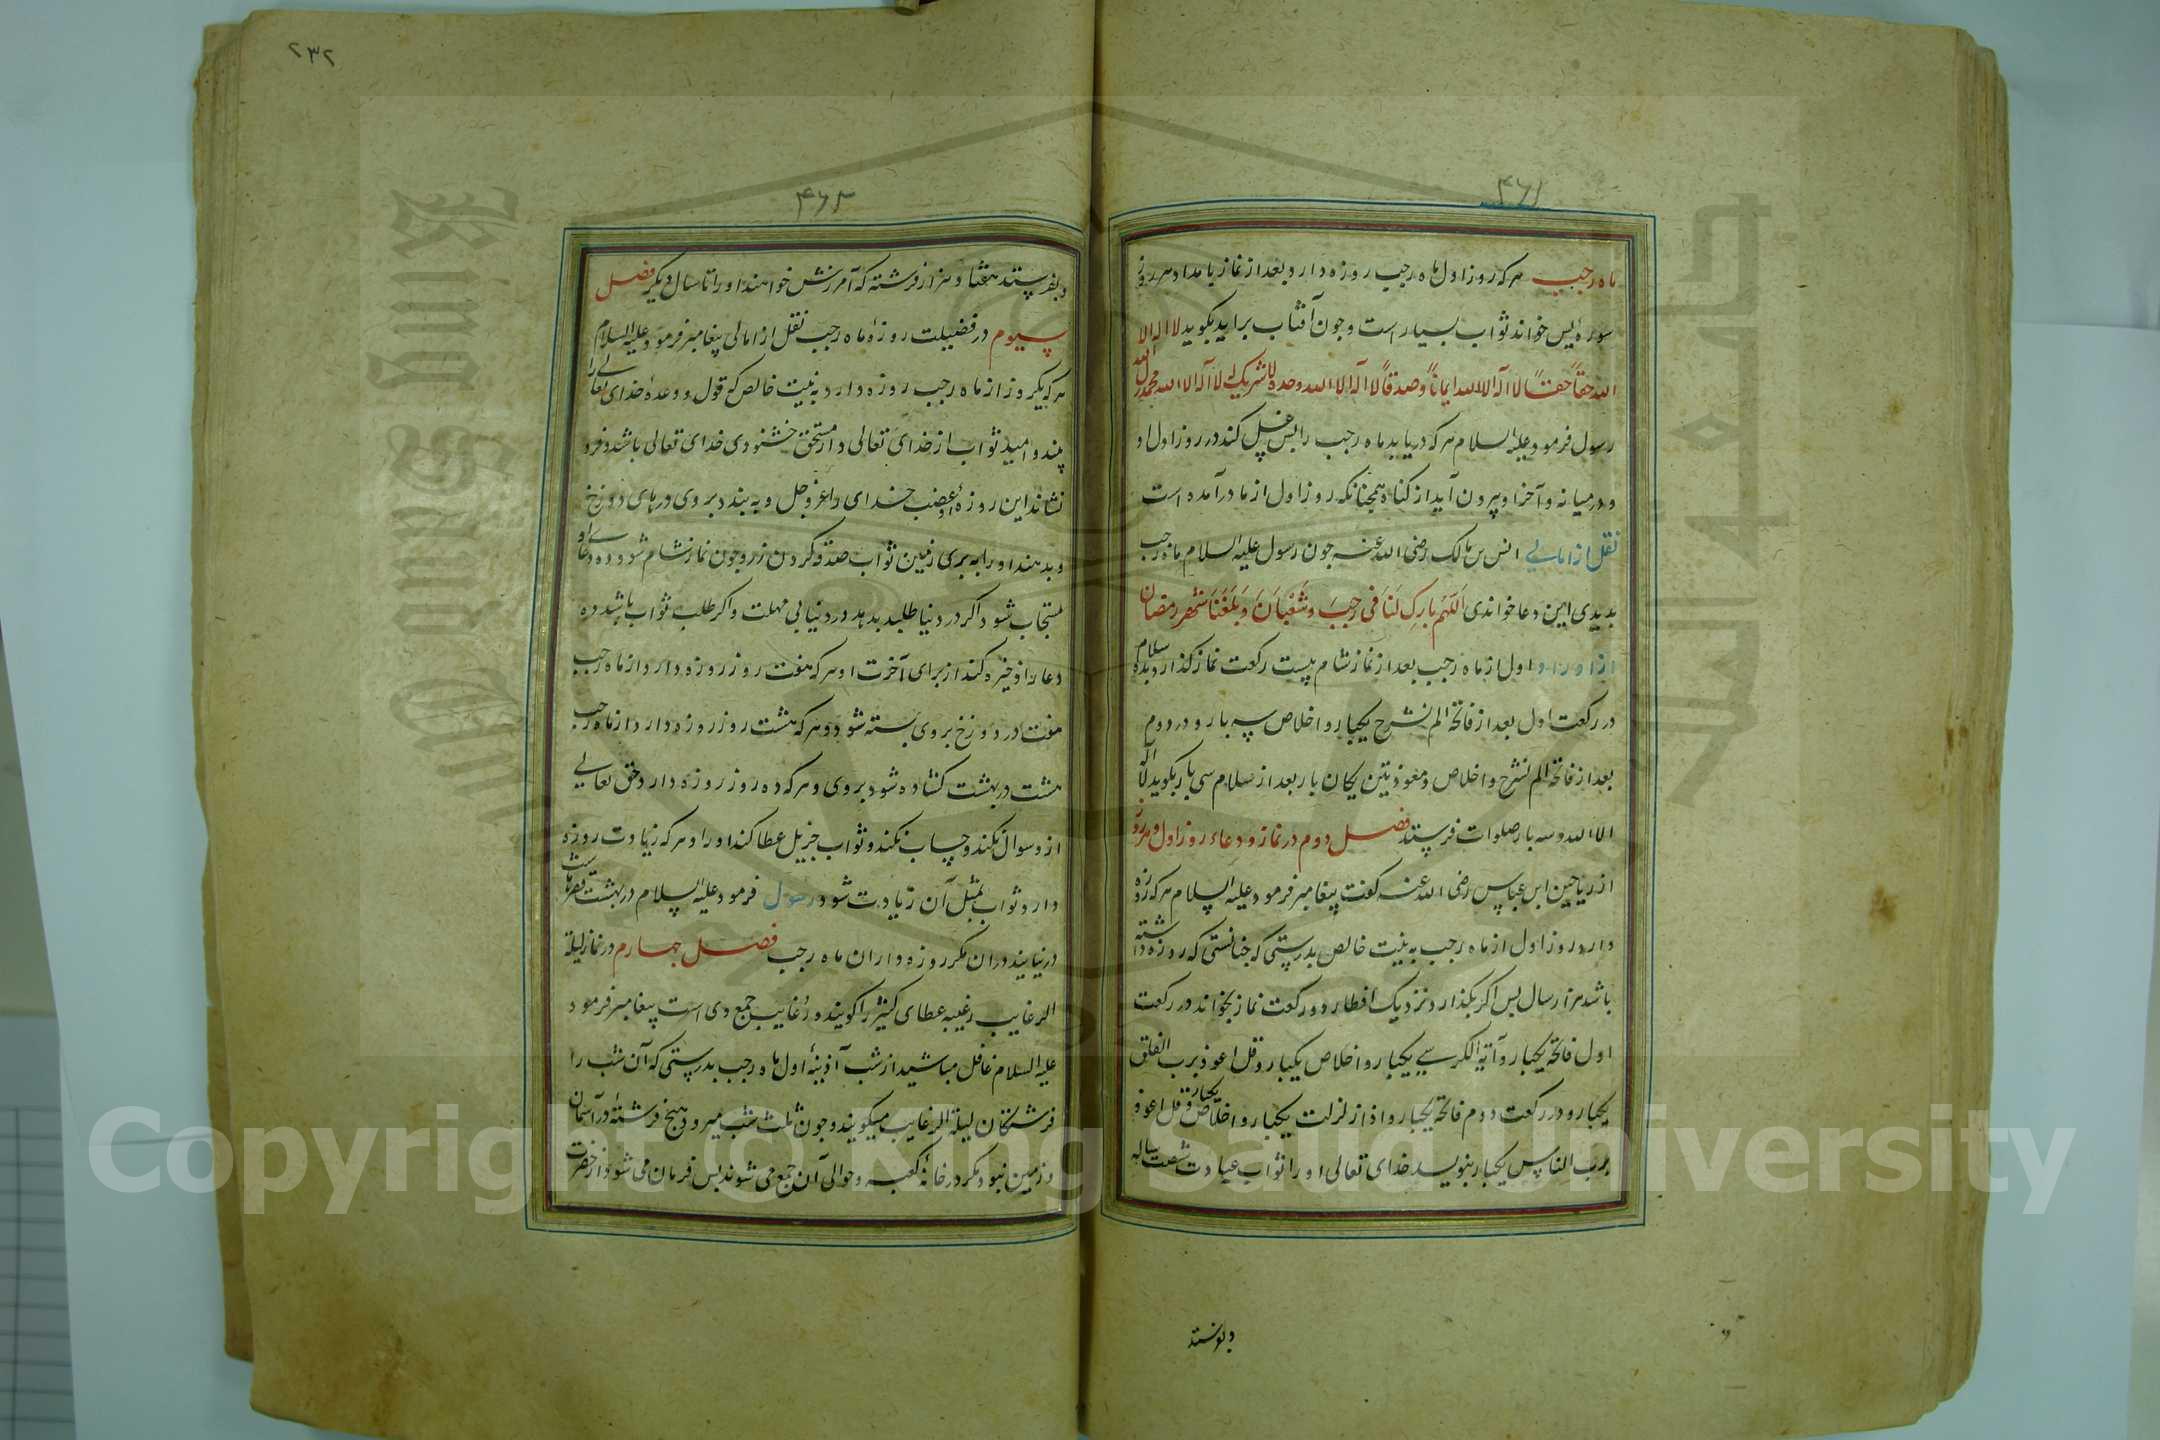 ۴۶۱
ماه رجب هر که روز اول ماه رجب روزه دارد و بعد از نماز بامداد هر روز
سورهٔ یس خواند ثواب بسیار است و چون آفتاب براید بگوید لا اله الا
الله حقاً حقاً لا اله الا الله ایماناً و صدقاً لا اله الا الله وحده لا شریک له لا اله الا الله محمد رسول الله
رسول فرمود علیه السلام هر که دریابد ماه رجب را پس غسل کند در روز اول او
و در میانه و آخر او بیرون آید از گناه همچنانکه روز اول از مادر آمده است
نقل از امالی انس بن مالک رضی الله عنه چون رسول علیه السلام ماه رجب
بدیدی این دعا خواندی اللهم بارک لنا فی رجب و شعبان و بلغنا شهر رمضان
از اوراد اول از ماه رجب بعد از نماز شام بیست رکعت نماز گذارد بده سلام
در رکعت اول بعد از فاتحه الم نشرح یکبار و اخلاص سه بار و در دوم
بعد از فاتحه الم نشرح و اخلاص و معوذتین یکان بار بعد از سلام سی بار بگوید لا اله
الا الله و سه بار صلوات فرستد فصل دوم در نماز و دعاء روز اول و هر روز
از ریاحین ابن عباس رضی الله عنه گفت پیغامبر فرمود علیه السلام هر که روزه
دارد روز اول از ماه رجب به نیت خالص بدرستی که چنانستی که روزه داشته
باشد هزار سال پس اگر بگذارد نزدیک افطار دو رکعت نماز بخواند در رکعت
اول فاتحه یکبار و آیة الکرسی یکبار و اخلاص یکبار و قل اعوذ برب الفلق
یکبار و در رکعت دوم فاتحه یکبار و اذا زلزلت یکبار و اخلاص یکبار و قل اعوذ
برب الناس یکبار بنویسد خدای تعالی او را ثواب عبادت شصت ساله
و بفرستد
۲۳۲
۴۶۲
و بفرستد هفتاد هزار فرشته که آمرزش خواهند او را تا سال دیگر فصل
سیوم در فضیلت روزهٔ ماه رجب نقل از امالی پیغامبر فرمود علیه السلام
هر که یکروز از ماه رجب روزه دارد به نیت خالص که قول و وعدهٔ خدای تعالی را
بیند و امید ثواب از خدای تعالی دارد مستحق خشنودی خدای تعالی باشد و فرو
نشاند این روزهٔ او غضب خدای را عز و جل و به بندد بروی درهای دوزخ
و بدهند او را به بری زمین ثواب صدقه کردن زر و چون نماز شام شود ده دعای او
مستجاب شود اگر در دنیا طلبد بدهد در دنیا بی مهلت و اگر طلب ثواب باشد ده
دعا را ذخیره کند از برای آخرت او هر که هفت روز روزه دارد از ماه رجب
هفت در دوزخ بروی بسته شود و هر که هشت روز روزه دارد از ماه رجب
هشت در بهشت گشاده شود بروی و هر که ده روز روزه دارد حق تعالی
از و سوال نکند و حساب نکند و ثواب جزیل عطا کند او را و هر که زیادت روزه
دارد ثواب بمثل آن زیادت شود رسول فرمود علیه السلام در بهشت قصرهاست
در نیایند در آن مگر روزه داران ماه رجب فصل چهارم در نماز لیلة
الرغایب رغیبه عطای کثیر را گویند و رغایب جمع وی است پیغامبر فرمود
علیه السلام غافل مباشید از شب آذینهٔ اول ماه رجب بدرستی که آن شب را
فرشتگان لیلة الرغایب میگویند و چون ثلث شب میرود هیچ فرشتهٔ در آسمان
و زمین نبود مگر در خانهٔ کعبه و حوالی آن جمع می شوند پس فرمان می شود از حضرت
Copyright © King Saud University